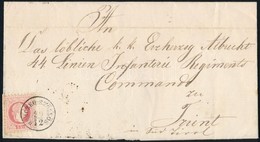 An
Das löbliche k. k. Erzherzog Albrecht
44 Linien Infanterie Regiments
Commando
zu
Trient
in Südtirol